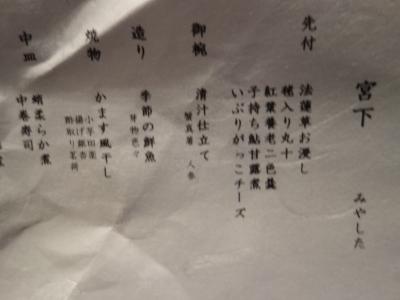 宮下 みやした
先付
法蓮草お浸し
穂入り丸十
紅葉養老二色羹
子持ち鮎甘露煮
いぶりがっこチーズ
御椀
清汁仕立て
蟹真薯 人参
造り
季節の鮮魚
芽物色々
焼物
かます風干し
小芋田楽
揚げ銀杏
酢取り茗荷
中皿
蛸柔らか煮
中巻寿司